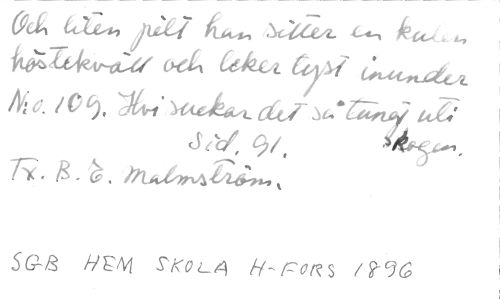 Och liten pilt han sitter en kulen
höstekväll och leker tyst inunder
N:o. 109. Hvi suckar det så tungt uti
skogen.
Sid. 91.
Tx. B. E. Malmström.
SGB HEM SKOLA H-FORS 1896